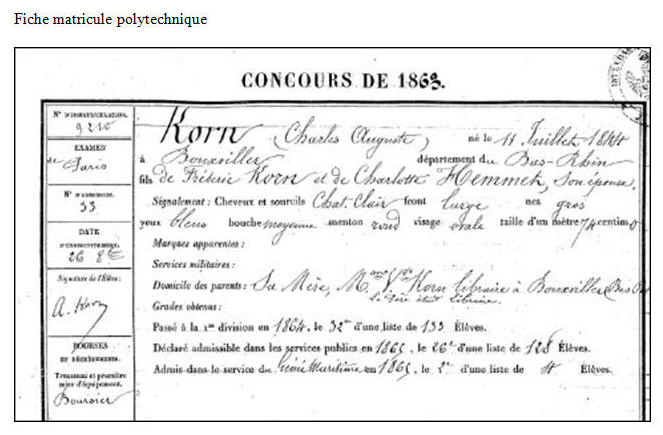 Fiche matricule polytechnique
CONCOURS DE 1863.
N° D'IMMATRICULATION.
9210
EXAMEN
de Paris
N° D'ADMISSION.
33
DATE
26 8bre
Signature de l'Élève:
A. Korn
BOURSES
Trousseau et première
mise d'équipement.
Boursier
Korn (Charles Auguste) né le 11 Juillet 1844
à Bouxviller département du Bas-Rhin
fils de Fréderic Korn et de Charlotte Hemmet, Son épouse.
Signalement: Cheveux et sourcils Chat. Clair front large nez gros
yeux bleus bouche moyenne menton rond visage ovale taille d'un mètre 74 centim
Marques apparentes:
Services militaires:
Domicile des parents: Sa Mère, Mme Vve Korn libraire à Bouxviller (Bas
Le Père était libraire.
Grades obtenus:
Passé à la 1re division en 1864, le 32e d'une liste de 133 Élèves.
Déclaré admissible dans les services publics en 1865, le 26e d'une liste de 128 Élèves.
Admis dans le service du Génie Maritime en 1865, le 2e d'une liste de 4 Élèves.